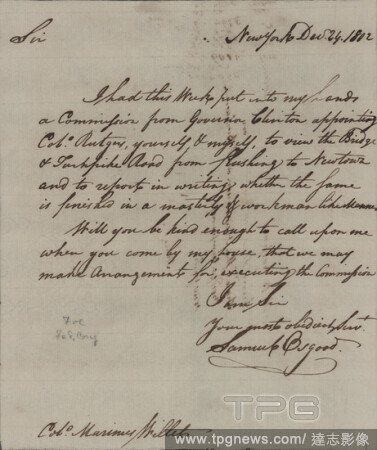 Sir
New York Dec. 24. 1802
I had this Week put into my hands
a Commission from Governor Clinton appointing
Colo. Rutgers, yourself & myself to view the Bridge
& Turnpike Road from flushing to Newtown
and to report in writing whether the same
is finished in a masterly & workman like Manner.
Will you be kind enough to call upon me
when you come by my house, that we may
make Arrangement for executing the commission
I am Sir
Your most obedient Servt.
Samuel Osgood.
Colo. Marinus Willet
TPG
www.tpgnews.com | 達志影像